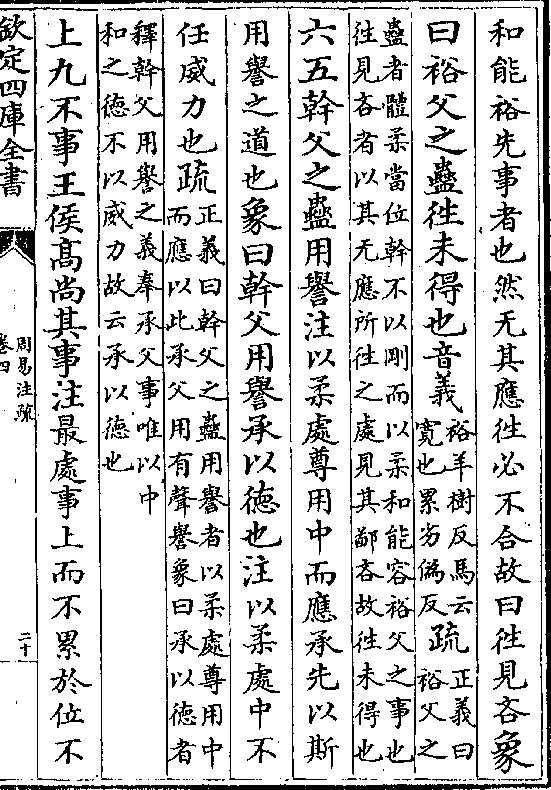 和能裕先事者也然无其應徃必不合故曰徃見吝象
曰裕父之蠱徃未得也音義裕羊樹反馬云
寛也累劣偽反疏正義曰
裕父之
蠱者體柔當位幹不以剛而以柔和能容裕父之事也
徃見吝者以其无應所徃之處見其鄙吝故徃未得也
六五幹父之蠱用譽注以柔處尊用中而應承先以斯
用譽之道也象曰幹父用譽承以徳也注以柔處中不
任威力也疏正義曰幹父之蠱用譽者以柔處尊用中
而應以此承父用有聲譽象曰承以徳者
釋幹父用譽之義奉承父事唯以中
和之徳不以威力故云承以徳也
上九不事王侯髙尚其事注最處事上而不累於位不
欽定四庫全書
周易注疏
卷四
二十